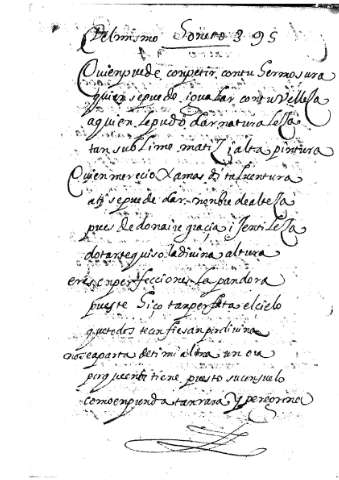 Del mismo Soneto 395
Quien puede conpetir con tu hermosura
quien se puede igualar con tu velleza
a quien le pudo dar naturaleza
tan sublime matiz j alta pintura
Quien merecio Xamas de tal ventura
se puede dar nonbre de alteza
pues de donaire gracia i jentileza
dotarte quiso la divina altura
eres en perfecciones la pandora
pues te hiço tan perfeta el cielo
que todos te confiesan por divina
no se aparta de ti mi alma un ora
porque en ti tiene puesto su consuelo
como en punda tan rara y peregrina